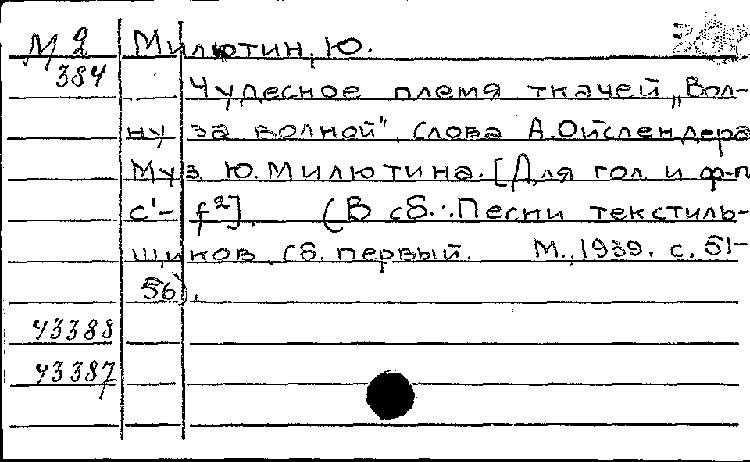 М 2 Милютин, Ю.
384
Чудесное племя ткачей „Вол-
ну за волной" Слова А.Ойслендера
Муз Ю.Милютина. [Для гол и ф-п
с¹- f²]. (В сб.: Песни текстиль-
щиков, сб. первый. М., 1939. с. 51-
56).
43388
43387